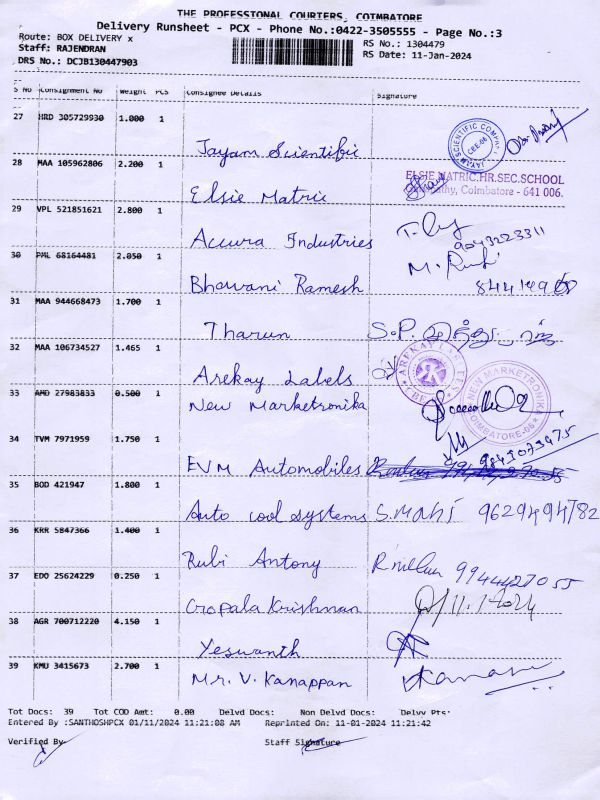 THE PROFESSTONAL COURTERS, COIMBATORE
Delivery Runsheet - PCX - Phone No.:0422-3505555 - Page No.:3
Route: BOX DELIVERY x RS No.: 1304479
Staff: RAJENDRAN RS Date: 11-Jan-2024
DRS No.: DCJB130447903
S No Consignment No Weight PCS Consignee Details Signature
27 HRD 305729930 1.000 1
Jayam Scientific
JAYAM SCIENTIFIC COMPANY CBE-06
28 MAA 105962806 2.200 1
Elsie Matric
ELSIE MATRIC.HR.SEC.SCHOOL
Coimbatore - 641 006.
29 VPL 521851621 2.800 1
Accura Industries
9043223311
30 PML 68164481 2.050 1
Bhavani Ramesh
31 MAA 944668473 1.700 1
Tharun S.P.
32 MAA 106734527 1.465 1
Arekay Labels
AREKAY
33 AMD 27983833 0.500 1
New Marketronika
NEW MARKETRONIKA COIMBATORE-06
34 TVM 7971959 1.750 1
EVM Automobiles
35 BOD 421947 1.800 1
Auto cool systems S.Mahi 9629494782
36 KRR 5847366 1.400 1
Rubi Antony 9944427055
37 EDO 25624229 0.250 1
Gopala Krishnan 11.1.2024
38 AGR 700712220 4.150 1
Yeswanth
39 KMU 3415673 2.700 1
Mr. V. Kanappan
Tot Docs: 39 Tot COD Amt: 0.00 Delvd Docs: Non Delvd Docs: Delvy Pts:
Entered By :SANTHOSHPCX 01/11/2024 11:21:08 AM Reprinted On: 11-01-2024 11:21:42
Verified By Staff Signature